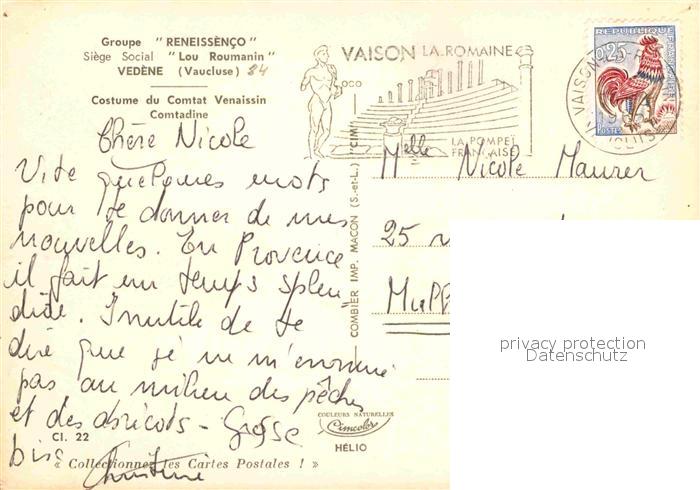 Groupe "RENEISSÈNÇO"
Siège Social "Lou Roumanin"
VEDÈNE (Vaucluse) 84
Costume du Comtat Venaissin
Comtadine
Chère Nicole
Vite quelques mots
pour te donner de mes
nouvelles. En Provence
il fait un temps splen
dide. Inutile de te
dire que je ne m'ennuie
pas au milieu des pêches
et des abricots - Grosse
bise Christine
Cl. 22
« Collectionnez les Cartes Postales ! »
COMBIER IMP. MACON (S.-et-L.) "CIM"
COULEURS NATURELLES
Cimcolor
HÉLIO
VAISON LA ROMAINE
LA POMPEÏ
FRANÇAISE
0,25
REPUBLIQUE FRANÇAISE
POSTES
VAISON
Melle Nicole Maurer
25
privacy protection
Datenschutz